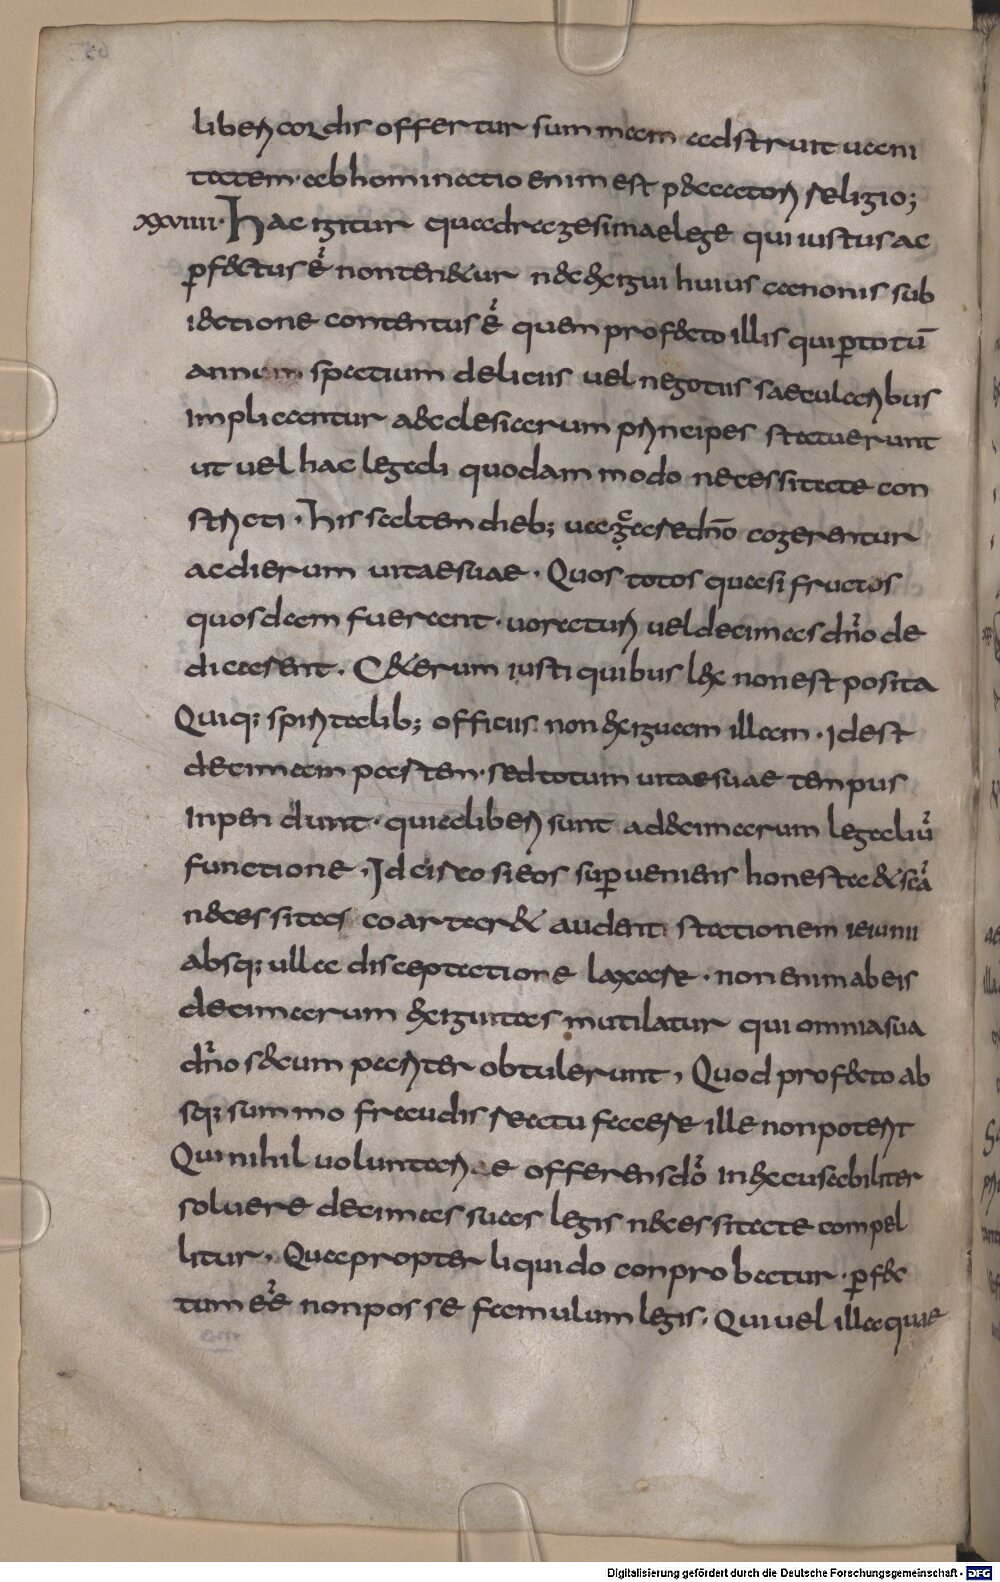 liberi cordis offertur summam adstruit uani
tatem. ab hominatio enim est pdccatori religio;
xxviiii. Hac igitur quadragesimae lege qui iustus ac
pfectus ē non tenetur nec exigui huius canonis sub
iectione contentus ē quem profecto illis qui ꝑ totū
annum spatium deliciis uel negotiis saecularibus
implicantur aecclesiarum principes statuerunt
ut uel hac legali quodam modo necessitate con
stricti. his saltem dieb; uacare dn̄o cogerentur
ac dierum uitae suae. Quos totos quasi fructos
quosdam fuerant. uoraturi uel decimas dn̄o de
dicarent. Ceterum iusti quibus lex non est posita
Quiq; spiritalib; officiis non exiguam illam. id est
decimam partem. sed totum uitae suae tempus
inpendunt. quia liberi sunt a decimarum legaliū
functione. Idcirco si eos superueniens honesta & sc̄a
necessitas coartar& audent stationem ieiunii
absq; ulla disceptatione laxare. non enim ab eis
decimarum exiguitas mutilatur qui omnia sua
dn̄o secum pariter obtulerunt, Quod profecto ab
sq; summo fraudis reatu facere ille non poterit
Qui nihil uoluntariae offerens dō inexcusabiliter
soluere decimas suas legis necessitate compel
litur. Quapropter liquido conprobatur. ꝑfec
tum eē non posse famulum legis. Qui uel illa quae